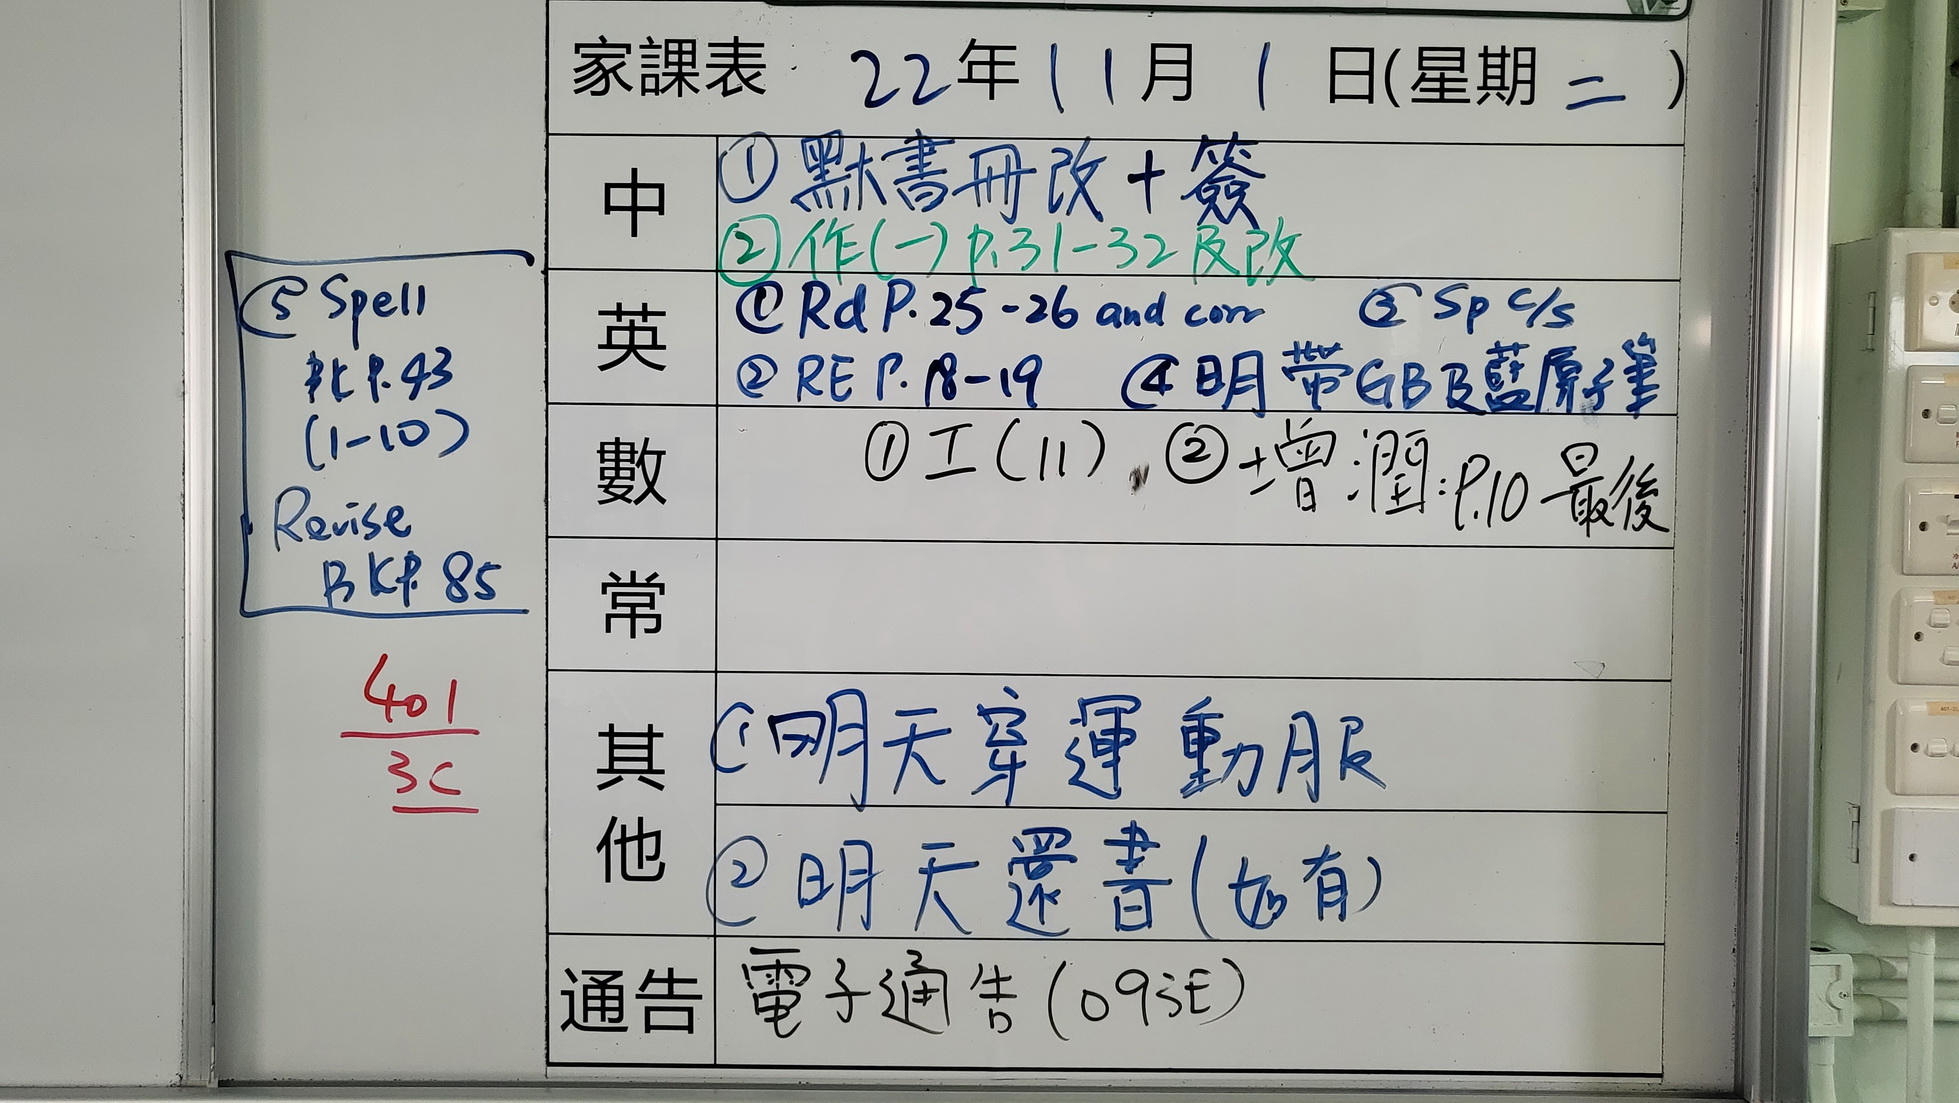 家課表 22年11月1日(星期二)
中
①默書冊改+簽
②作(一)p.31-32及改
英
①Rd P.25-26 and corr ③Sp c/s
②RE P.18-19 ④明帶GB及藍原子筆
⑤Spell
BK P.43
(1-10)
Revise
BK P.85
數
①工(11). ②增潤:P.10最後
常
其他
①明天穿運動服
②明天還書(如有)
通告
電子通告(093E)
401
3C